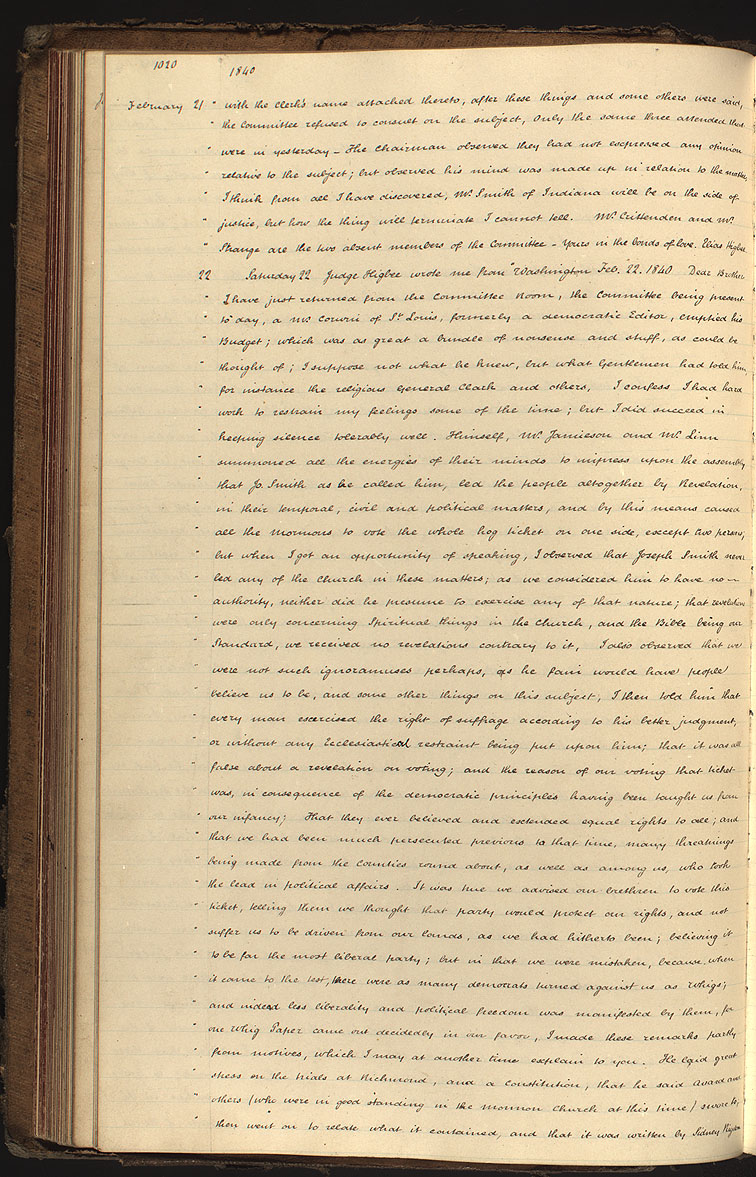 1020
1840
J.
February 21 " with the Clerk's name attached thereto, after these things and some others were said,
" the Committee refused to consult on the subject, Only the same three attended that
" were in yesterday – The Chairman observed they had not expressed any opinion
" relative to the subject; but observed his mind was made up in relation to the matter,
" I think from all I have discovered, Mr. Smith of Indiana will be on the side of
" justice, but how the thing will terminate I cannot tell. Mr. Crittenden and Mr.
" Strange are the two absent members of the Committee – yours in the bonds of love. Elias Higbee
22 Saturday 22 Judge Higbee wrote me from "Washington Feb. 22. 1840 Dear Brother
" I have just returned from the Committee Room, the Committee being present
" to day, a Mr. Corwin of St. Louis, formerly a democratic Editor, emptied his
" Budget; which was as great a bundle of nonsense and stuff, as could be
" thought of; I suppose not what he knew, but what Gentlemen had told him,
" for instance the religious General Clark and others, I confess I had hard
" work to restrain my feelings some of the time; but I did succeed in
" keeping silence tolerably well. Himself, Mr. Jamieson and Mr. Linn
" summoned all the energies of their minds to impress upon the assembly
" that Jo. Smith as he called him, led the people altogether by Revelation,
" in their temporal, civil and political matters, and by this means caused
" all the Mormons to vote the whole hog ticket on one side, except two persons,
" but when I got an opportunity of speaking, I observed that Joseph Smith never
" led any of the Church in these matters; as we considered him to have no –
" authority, neither did he presume to exercise any of that nature; that revelations
" were only concerning Spiritual things in the Church, and the Bible being our
" Standard, we received no revelations contrary to it, I also observed that we
" were not such ignoramuses perhaps, as he fain would have people
" believe us to be, and some other things on this subject, I then told him that
" every man exercised the right of suffrage according to his better judgment,
" or without any Ecclesiastical restraint being put upon him; that it was all
" false about a revelation on voting; and the reason of our voting that ticket
" was, in consequence of the democratic principles having been taught us from
" our infancy; That they ever believed and extended equal rights to all; and
" that we had been much persecuted previous to that time, many threatnings
" being made from the Counties round about, as well as among us, who took
" the lead in political affairs. It was true we advised our brethren to vote this
" ticket, telling them we thought that party would protect our rights, and not
" suffer us to be driven from our lands, as we had hitherto been; believing it
" to be far the most liberal party; but in that we were mistaken, because, when
" it came to the test, there were as many democrats turned against us as Whigs;
" and indeed less liberality and political freedom was manifested by them, for
" one Whig Paper came out decidedly in our favor, I made these remarks partly
" from motives, which I may at another time explain to you. He laid great
" stress on the trials at Richmond, and a Constitution, that he said Avard and
" others (who were in good standing in the Mormon Church at this time) swore to,
" then went on to relate what it contained, and that it was written by Sidney Rigdon